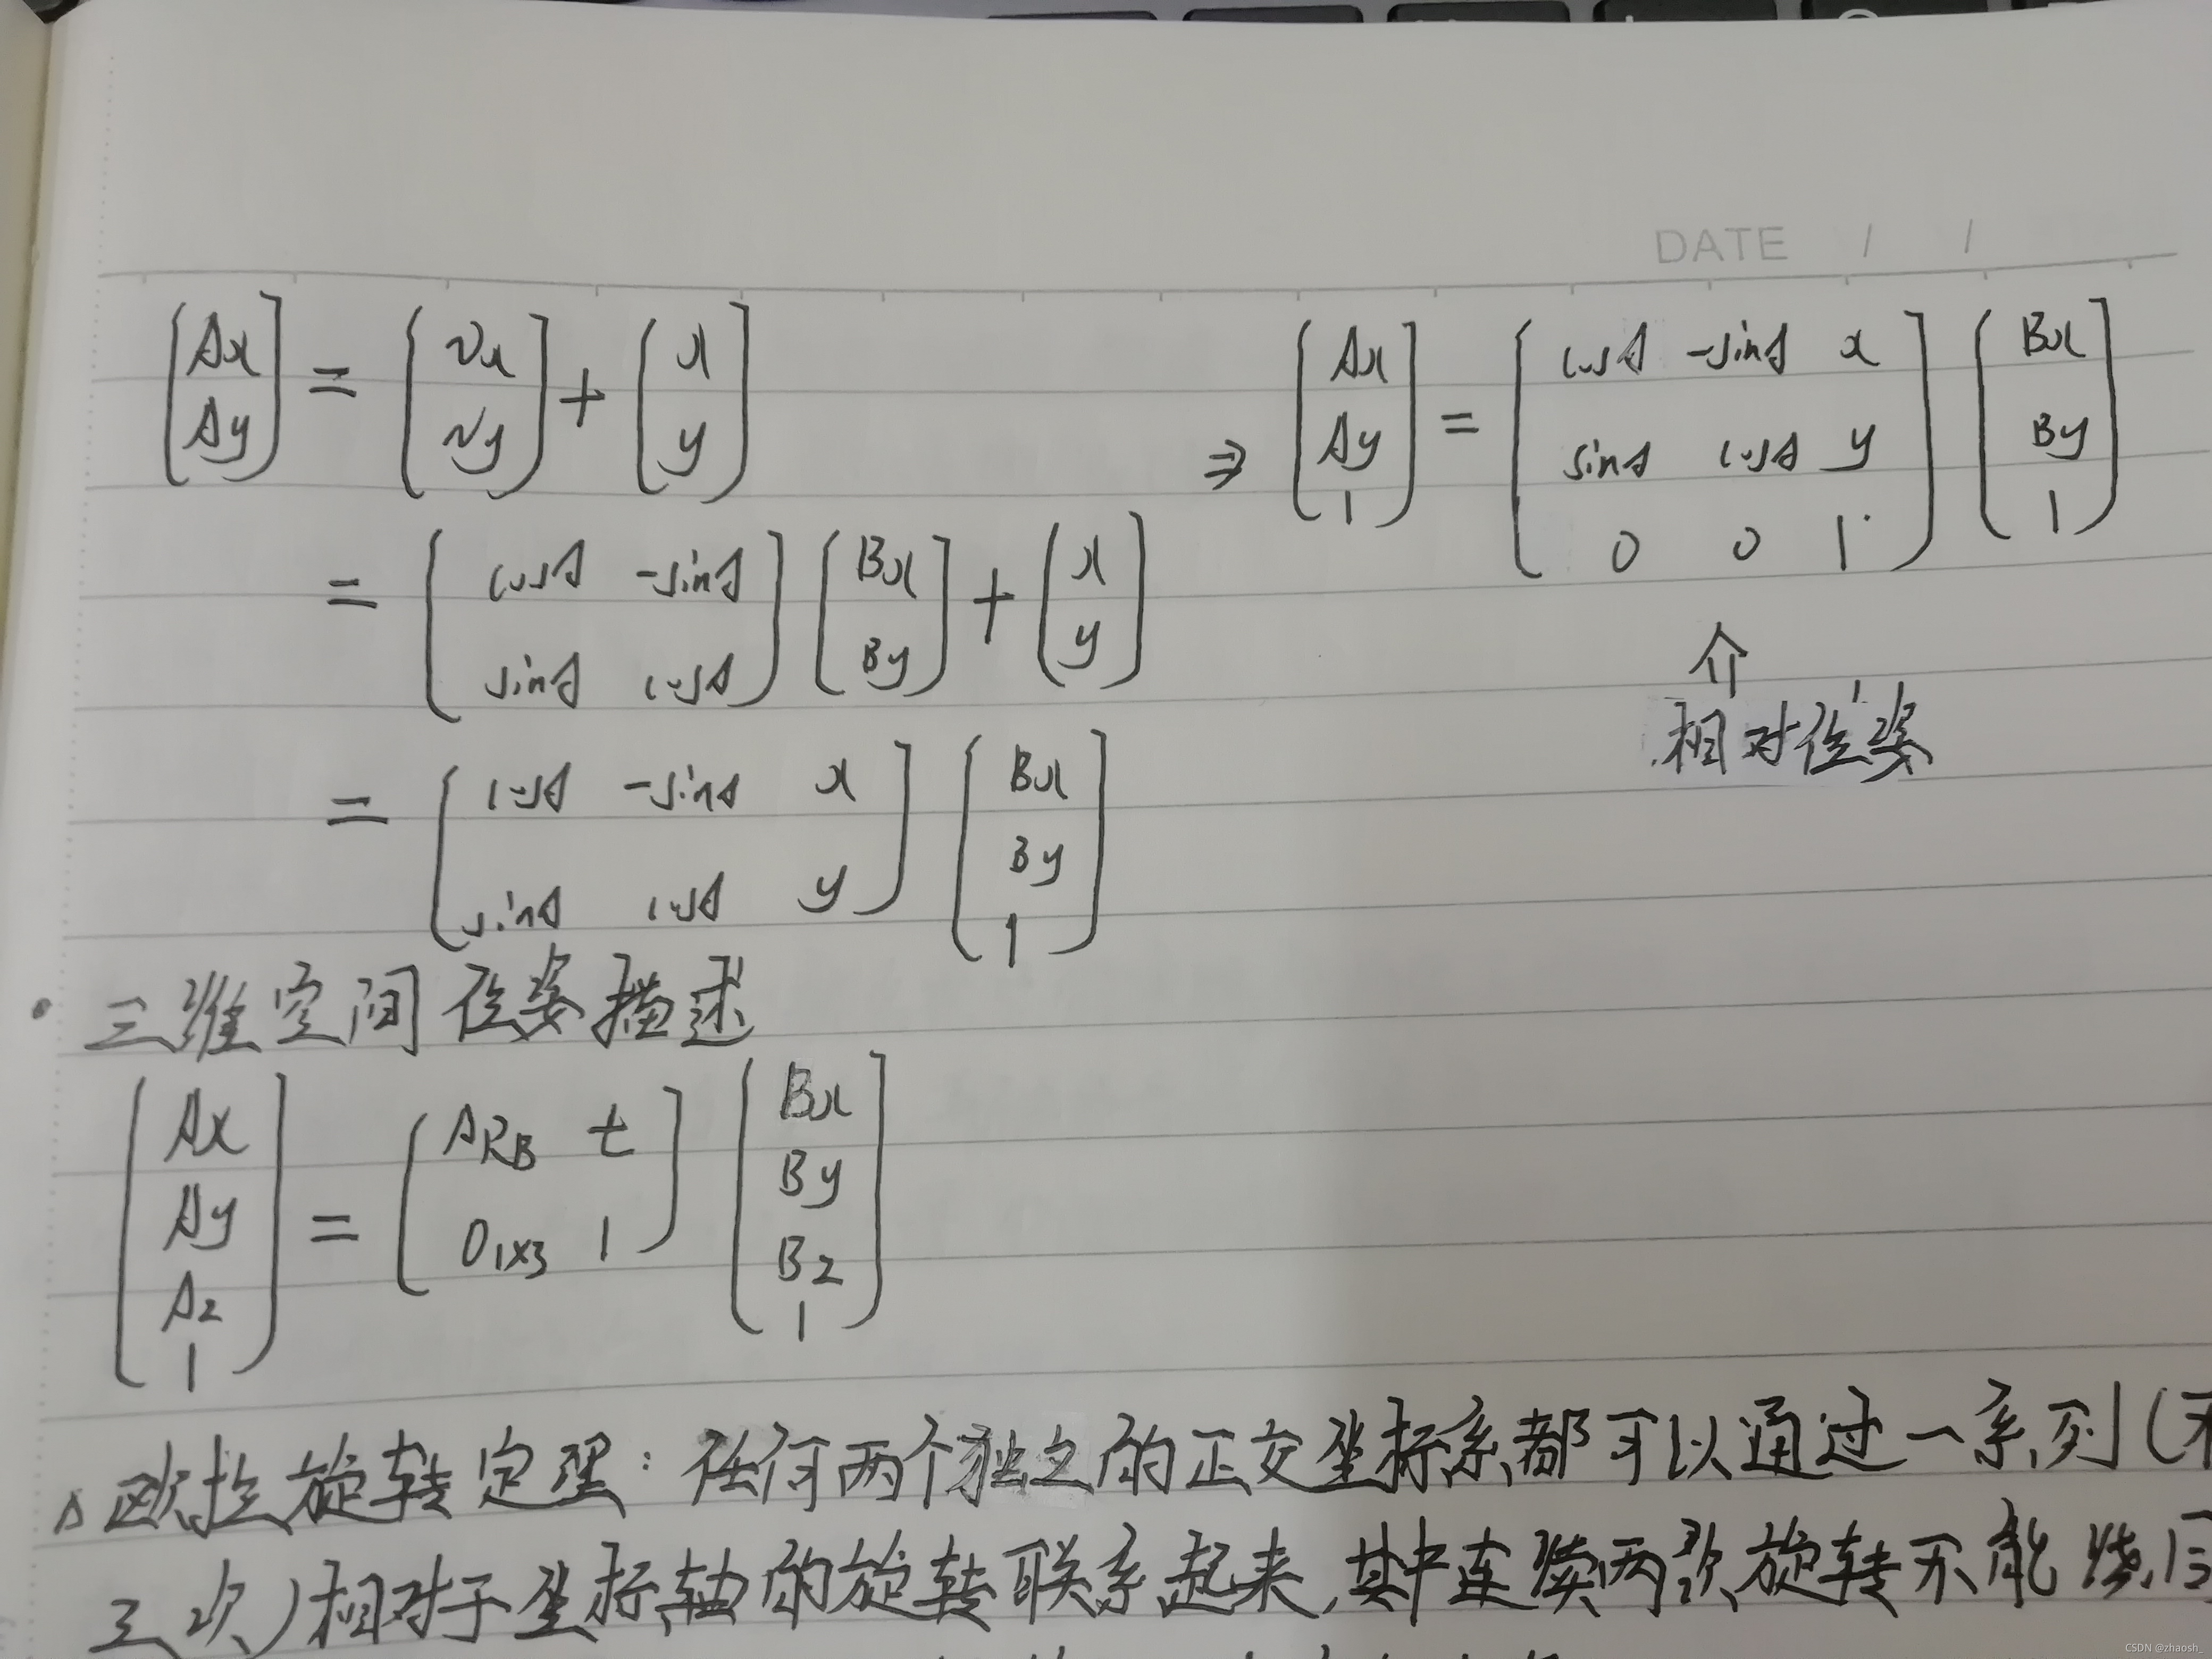 DATE / /
[Ax Ay] = [Vx Vy] + [x y]
⇒ [Ax Ay 1] = [cosθ -sinθ x; sinθ cosθ y; 0 0 1] [Bx By 1]
= [cosθ -sinθ; sinθ cosθ] [Bx By] + [x y]
相对位姿
= [cosθ -sinθ x; sinθ cosθ y] [Bx By 1]
三维空间位姿描述
[Ax Ay Az 1] = [ARB t; 0 1x3 1] [Bx By Bz 1]
欧拉旋转定理:任何两个独立的正交坐标系都可以通过一系列(不
三次)相对于坐标轴的旋转联系起来,其中连续两次旋转不能绕同
CSDN @zhaosh_